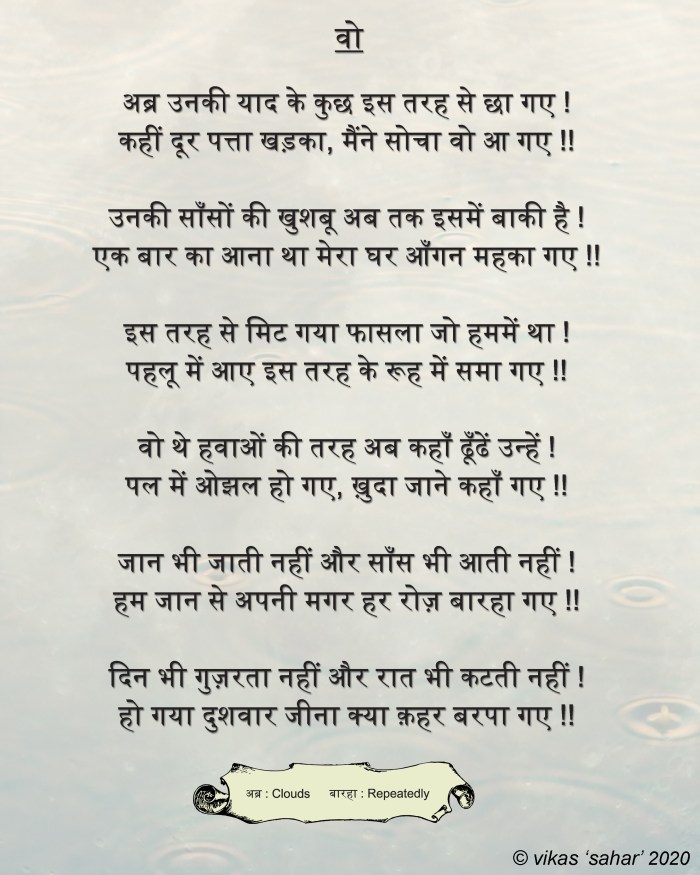 वो
अब्र उनकी याद के कुछ इस तरह से छा गए !
कहीं दूर पत्ता खड़का, मैंने सोचा वो आ गए !!
उनकी साँसों की खुशबू अब तक इसमें बाकी है !
एक बार का आना था मेरा घर आँगन महका गए !!
इस तरह से मिट गया फासला जो हममें था !
पहलू में आए इस तरह के रूह में समा गए !!
वो थे हवाओं की तरह अब कहाँ ढूँढें उन्हें !
पल में ओझल हो गए, ख़ुदा जाने कहाँ गए !!
जान भी जाती नहीं और साँस भी आती नहीं !
हम जान से अपनी मगर हर रोज़ बारहा गए !!
दिन भी गुज़रता नहीं और रात भी कटती नहीं !
हो गया दुशवार जीना क्या क़हर बरपा गए !!
अब्र : Clouds बारहा : Repeatedly
© vikas ‘sahar’ 2020